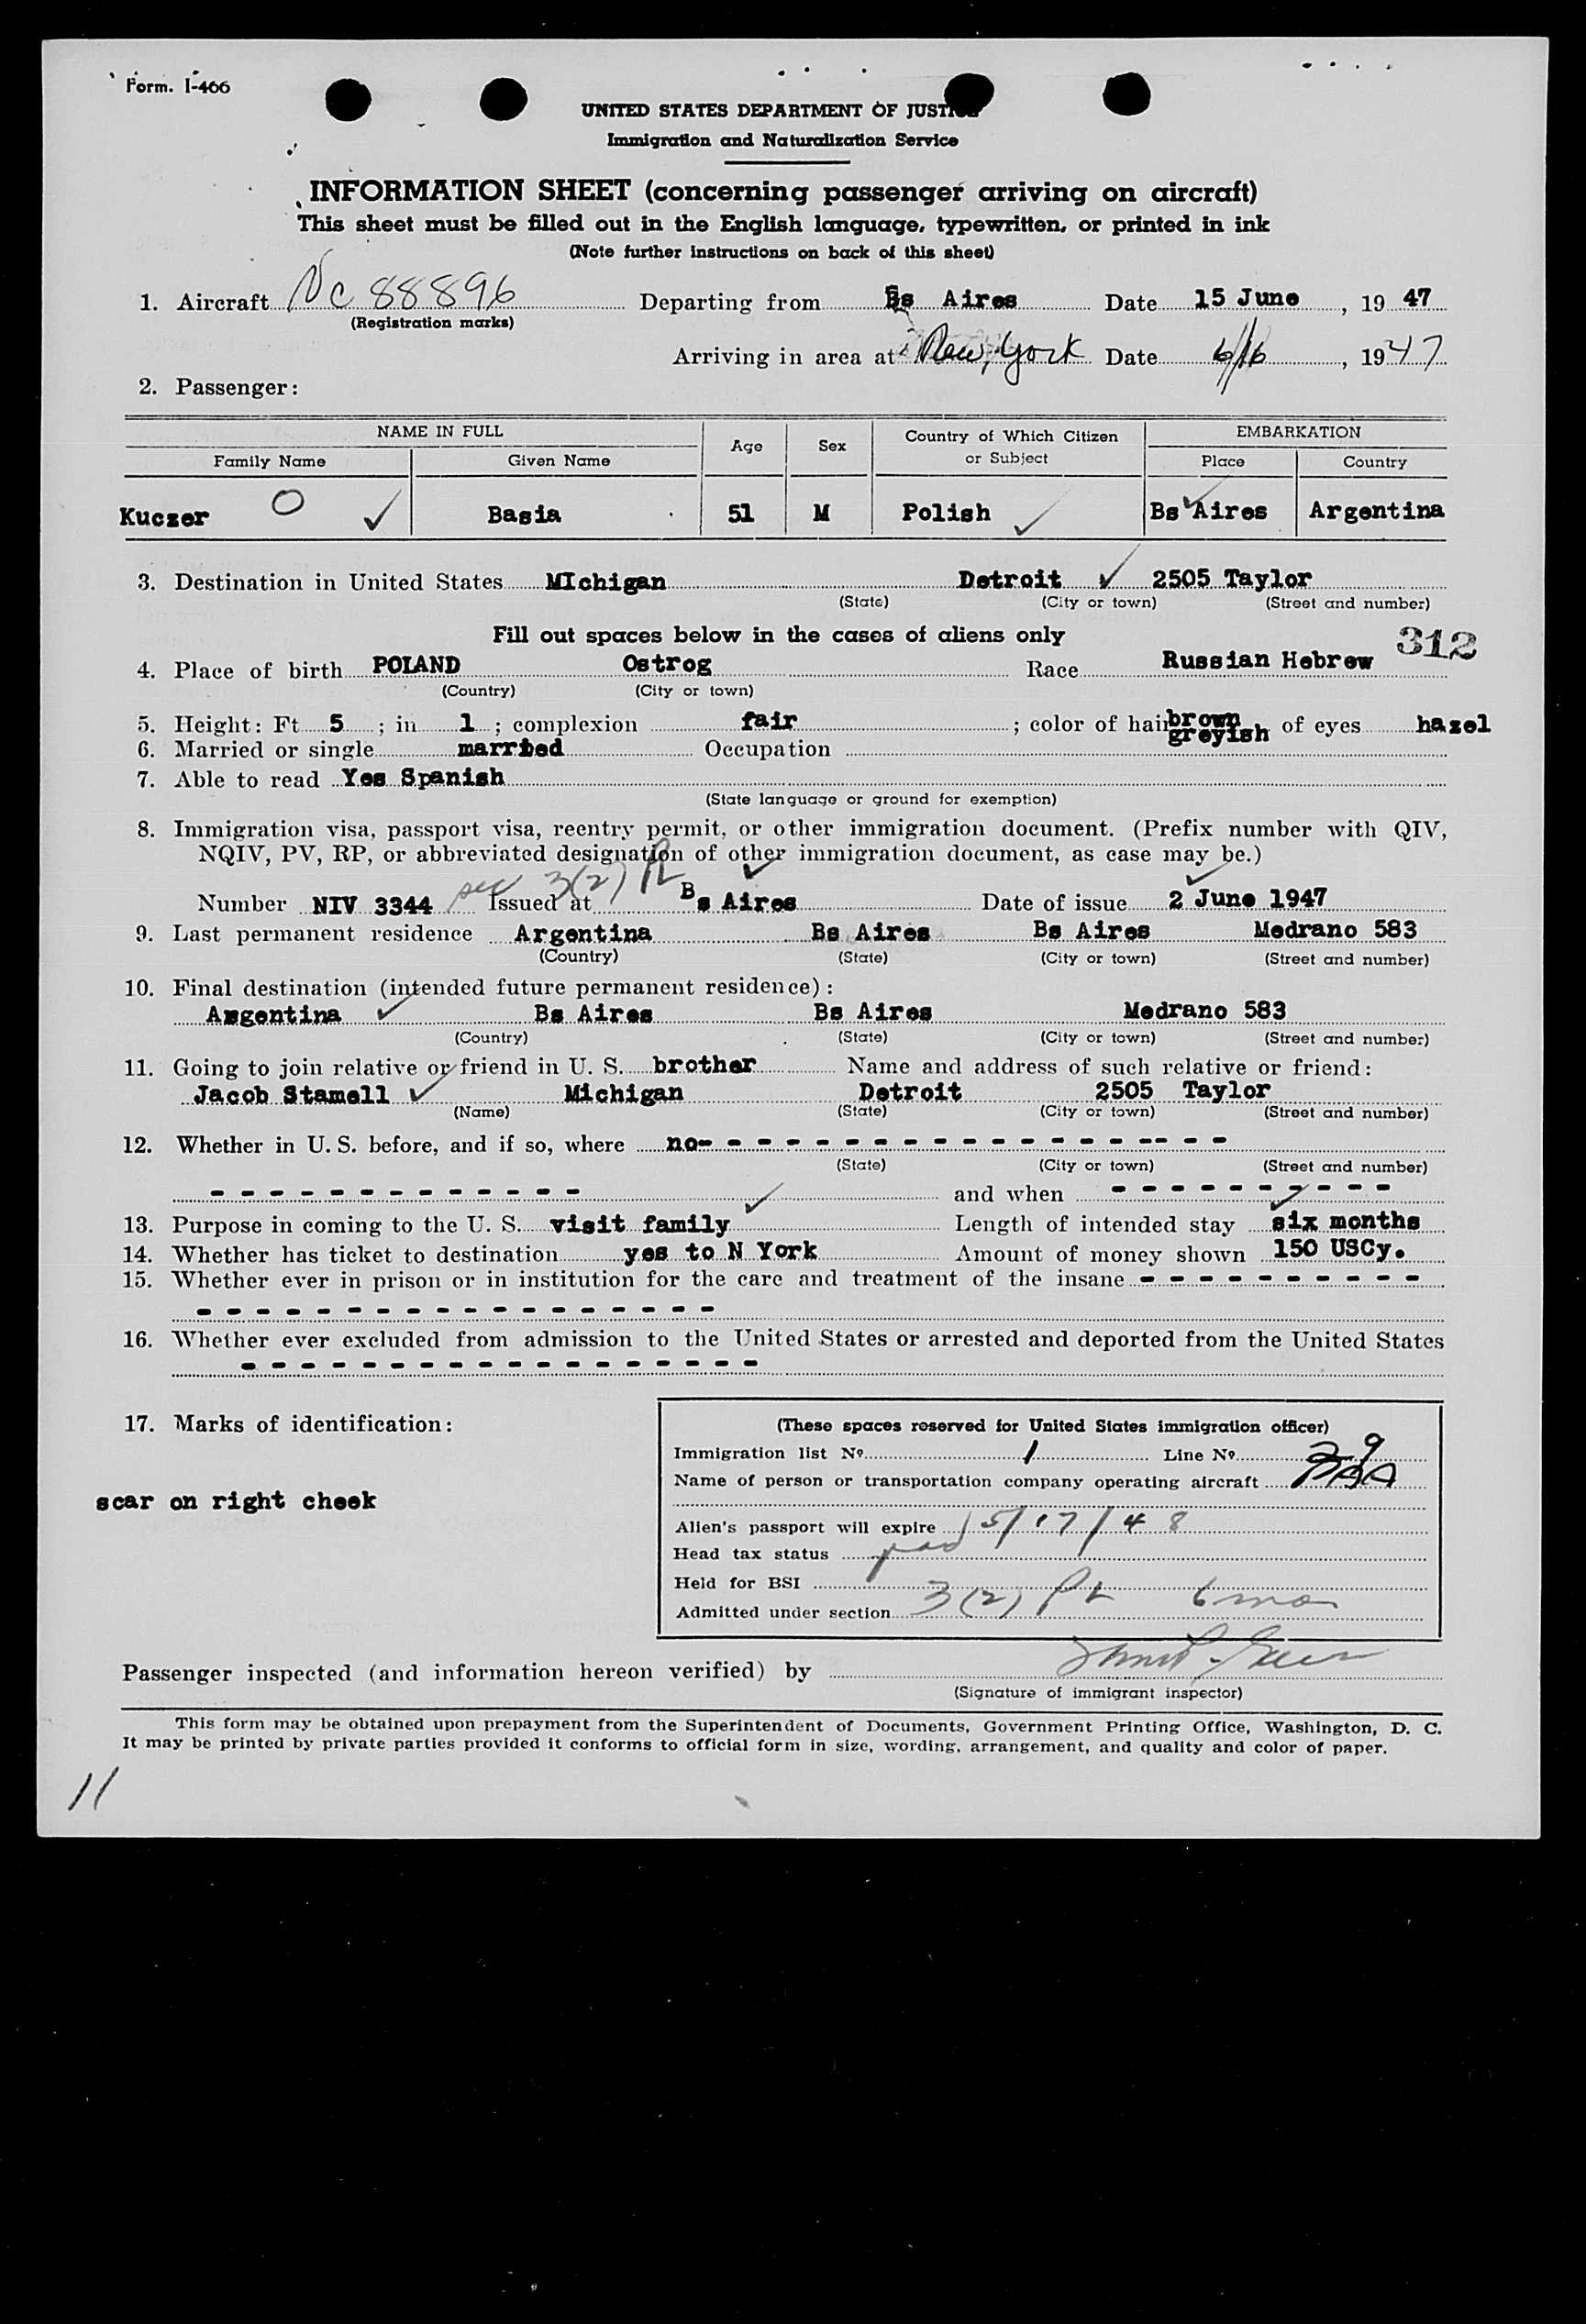 Form. I-466
UNITED STATES DEPARTMENT OF JUSTICE
Immigration and Naturalization Service
INFORMATION SHEET (concerning passenger arriving on aircraft)
This sheet must be filled out in the English language, typewritten, or printed in ink
(Note further instructions on back of this sheet)
1. Aircraft Nc 88896 Departing from Bs Aires Date 15 June, 19 47
(Registration marks)
Arriving in area at New York Date 6/16, 1947
2. Passenger:
NAME IN FULL Age Sex Country of Which Citizen or Subject EMBARKATION
Family Name Given Name Place Country
Kuczer O Basia 51 M Polish Bs Aires Argentina
3. Destination in United States MIchigan Detroit 2505 Taylor
(State) (City or town) (Street and number)
Fill out spaces below in the cases of aliens only
312
4. Place of birth POLAND Ostrog Race Russian Hebrew
(Country) (City or town)
5. Height: Ft 5; in 1; complexion fair; color of hair brown greyish, of eyes hazel
6. Married or single married Occupation
7. Able to read Yes Spanish
(State language or ground for exemption)
8. Immigration visa, passport visa, reentry permit, or other immigration document. (Prefix number with QIV,
NQIV, PV, RP, or abbreviated designation of other immigration document, as case may be.)
sec 3(2)
Number NIV 3344 Issued at Bs Aires Date of issue 2 June 1947
9. Last permanent residence Argentina Bs Aires Bs Aires Medrano 583
(Country) (State) (City or town) (Street and number)
10. Final destination (intended future permanent residence):
Argentina Bs Aires Bs Aires Medrano 583
(Country) (State) (City or town) (Street and number)
11. Going to join relative or friend in U. S. brother Name and address of such relative or friend:
Jacob Stamell Michigan Detroit 2505 Taylor
(Name) (State) (City or town) (Street and number)
12. Whether in U. S. before, and if so, where no- - - - - - - - - - - - - - - - - - -
(State) (City or town) (Street and number)
- - - - - - - - - - - - - and when - - - - - - - - - -
13. Purpose in coming to the U. S. visit family Length of intended stay six months
14. Whether has ticket to destination yes to N York Amount of money shown 150 USCy.
15. Whether ever in prison or in institution for the care and treatment of the insane - - - - - - - - - -
- - - - - - - - - - - - - - - - - -
16. Whether ever excluded from admission to the United States or arrested and deported from the United States
- - - - - - - - - - - - - - - - - -
17. Marks of identification:
scar on right cheek
(These spaces reserved for United States immigration officer)
Immigration list No. 1 Line No. 29
Name of person or transportation company operating aircraft PAA
Alien's passport will expire 5/17/48
Head tax status
Held for BSI
Admitted under section 3(2) 6 mo
Passenger inspected (and information hereon verified) by
(Signature of immigrant inspector)
This form may be obtained upon prepayment from the Superintendent of Documents, Government Printing Office, Washington, D. C.
It may be printed by private parties provided it conforms to official form in size, wording, arrangement, and quality and color of paper.
11